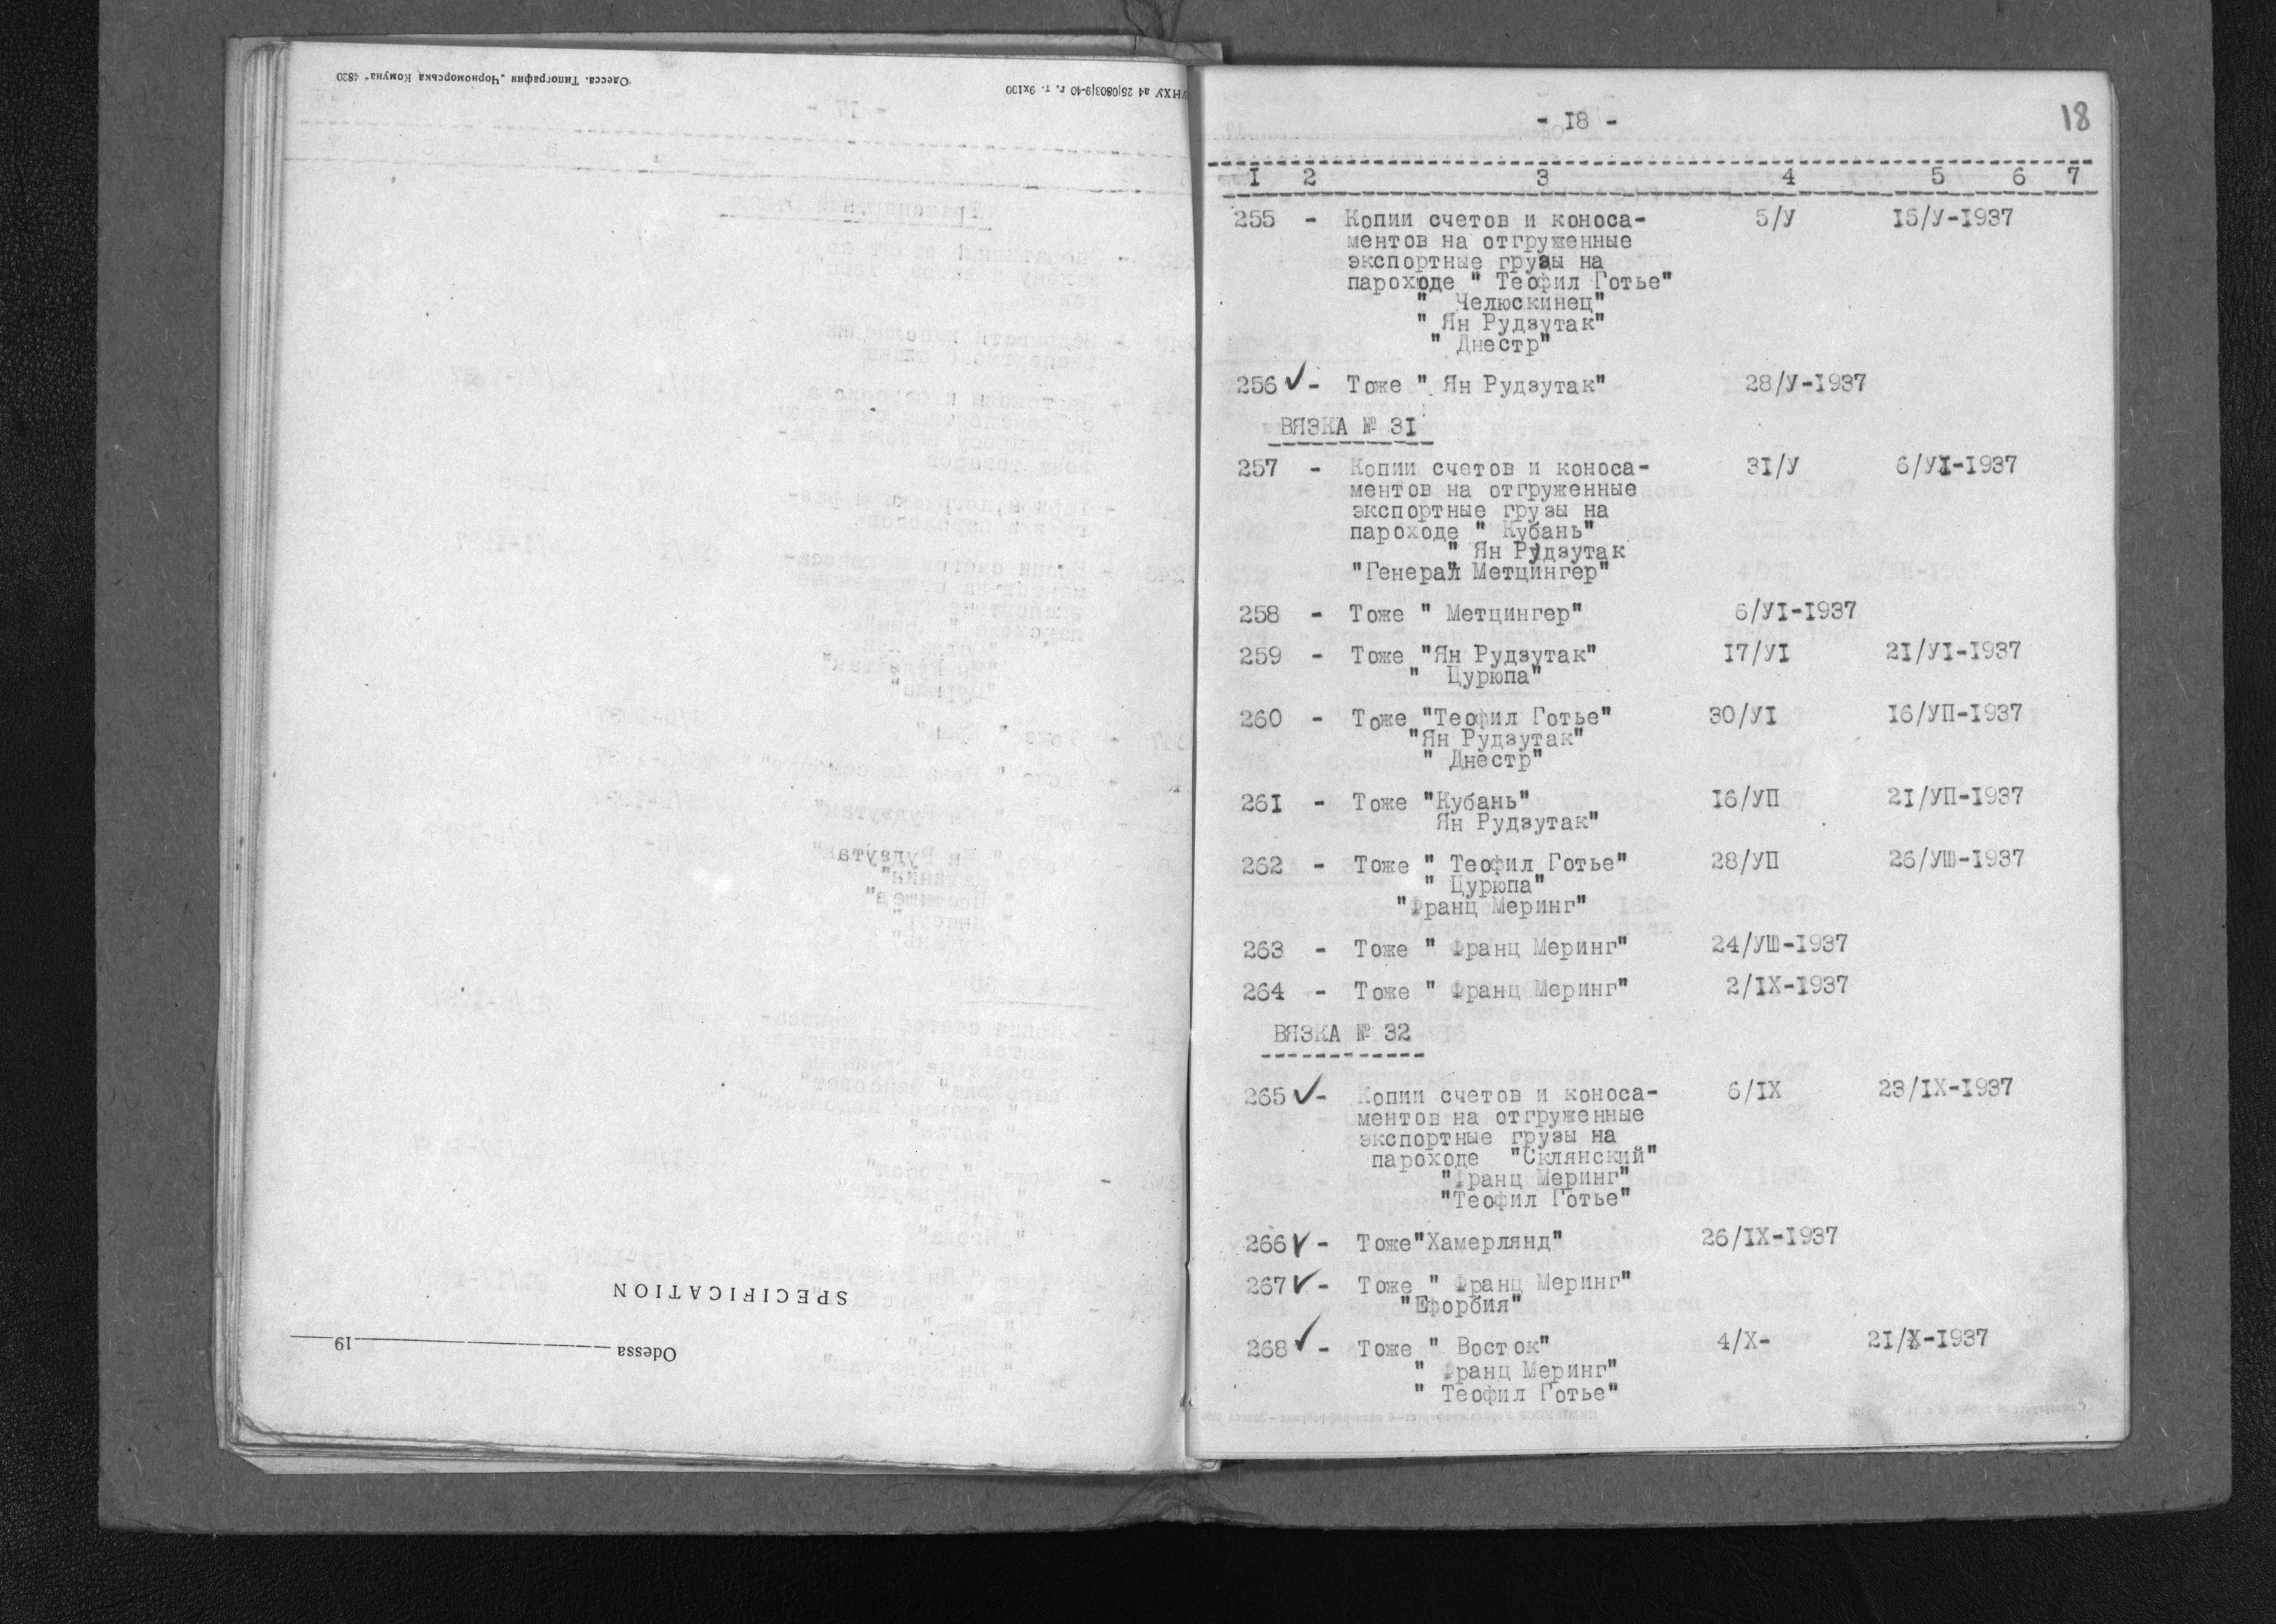 Одесса. Типография „Чорноморська Комуна" 4820
УНХУ а4 25|0803|9-40 г. т. 9х100
SPECIFICATION
Odessa 19
18
- I8 -
I 2 3 4 5 6 7
255 - Копии счетов и коноса- 5/У I5/У-I937
ментов на отгруженные
экспортные грузы на
пароходе " Теофил Готье"
" Челюскинец"
" Ян Рудзутак"
" Днестр"
256 ✓ - Тоже " Ян Рудзутак" 28/У-I937
ВЯЗКА № 3I
257 - Копии счетов и коноса- 3I/У 6/УI-I937
ментов на отгруженные
экспортные грузы на
пароходе " Кубань"
" Ян Рудзутак
"Генерал Метцингер"
258 - Тоже " Метцингер" 6/УI-I937
259 - Тоже "Ян Рудзутак" I7/УI 2I/УI-I937
" Цурюпа"
260 - Тоже "Теофил Готье" 30/УI I6/УП-I937
"Ян Рудзутак"
" Днестр"
26I - Тоже "Кубань" I6/УП 2I/УП-I937
Ян Рудзутак"
262 - Тоже " Теофил Готье" 28/УП 26/УШ-I937
" Цурюпа"
"Франц Меринг"
263 - Тоже " Франц Меринг" 24/УШ-I937
264 - Тоже " Франц Меринг" 2/IX-I937
ВЯЗКА № 32
265 ✓ - Копии счетов и коноса- 6/IX 23/IX-I937
ментов на отгруженные
экспортные грузы на
пароходе "Склянский"
"Франц Меринг"
"Теофил Готье"
266 ✓ - Тоже"Хамерлянд" 26/IX-I937
267 ✓ - Тоже " Франц Меринг"
"Ефорбия"
268 ✓ - Тоже " Восток" 4/X- 2I/X-I937
" Франц Меринг"
" Теофил Готье"